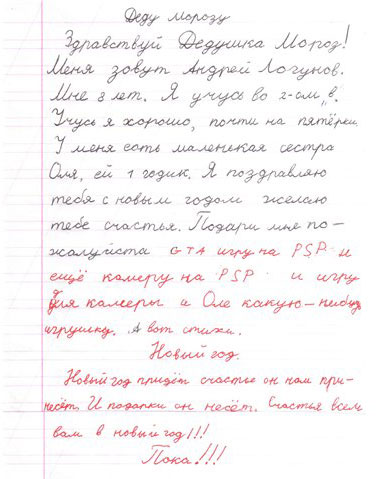 Деду морозу
Здравствуй Дедушка Мороз!
Меня зовут Андрей Логунов.
Мне 8 лет. Я учусь во 2-ом „в.
Учусь я хорошо, почти на пятёрки.
У меня есть маленская сестра
Оля, ей 1 годик. Я поздравляю
тебя с новым годом желаю
тебе счастья. Подари мне по-
жалуйста GTA игру на PSP и
ещё камеру на PSP и игру
для камеры и Оле какую-нибудь
игрушку. А вот стихи.
Новый год.
Новый год придёт счастье он нам при-
несёт. И подарки он несёт. Счастья всем
вам в новый год!!!
Пока!!!